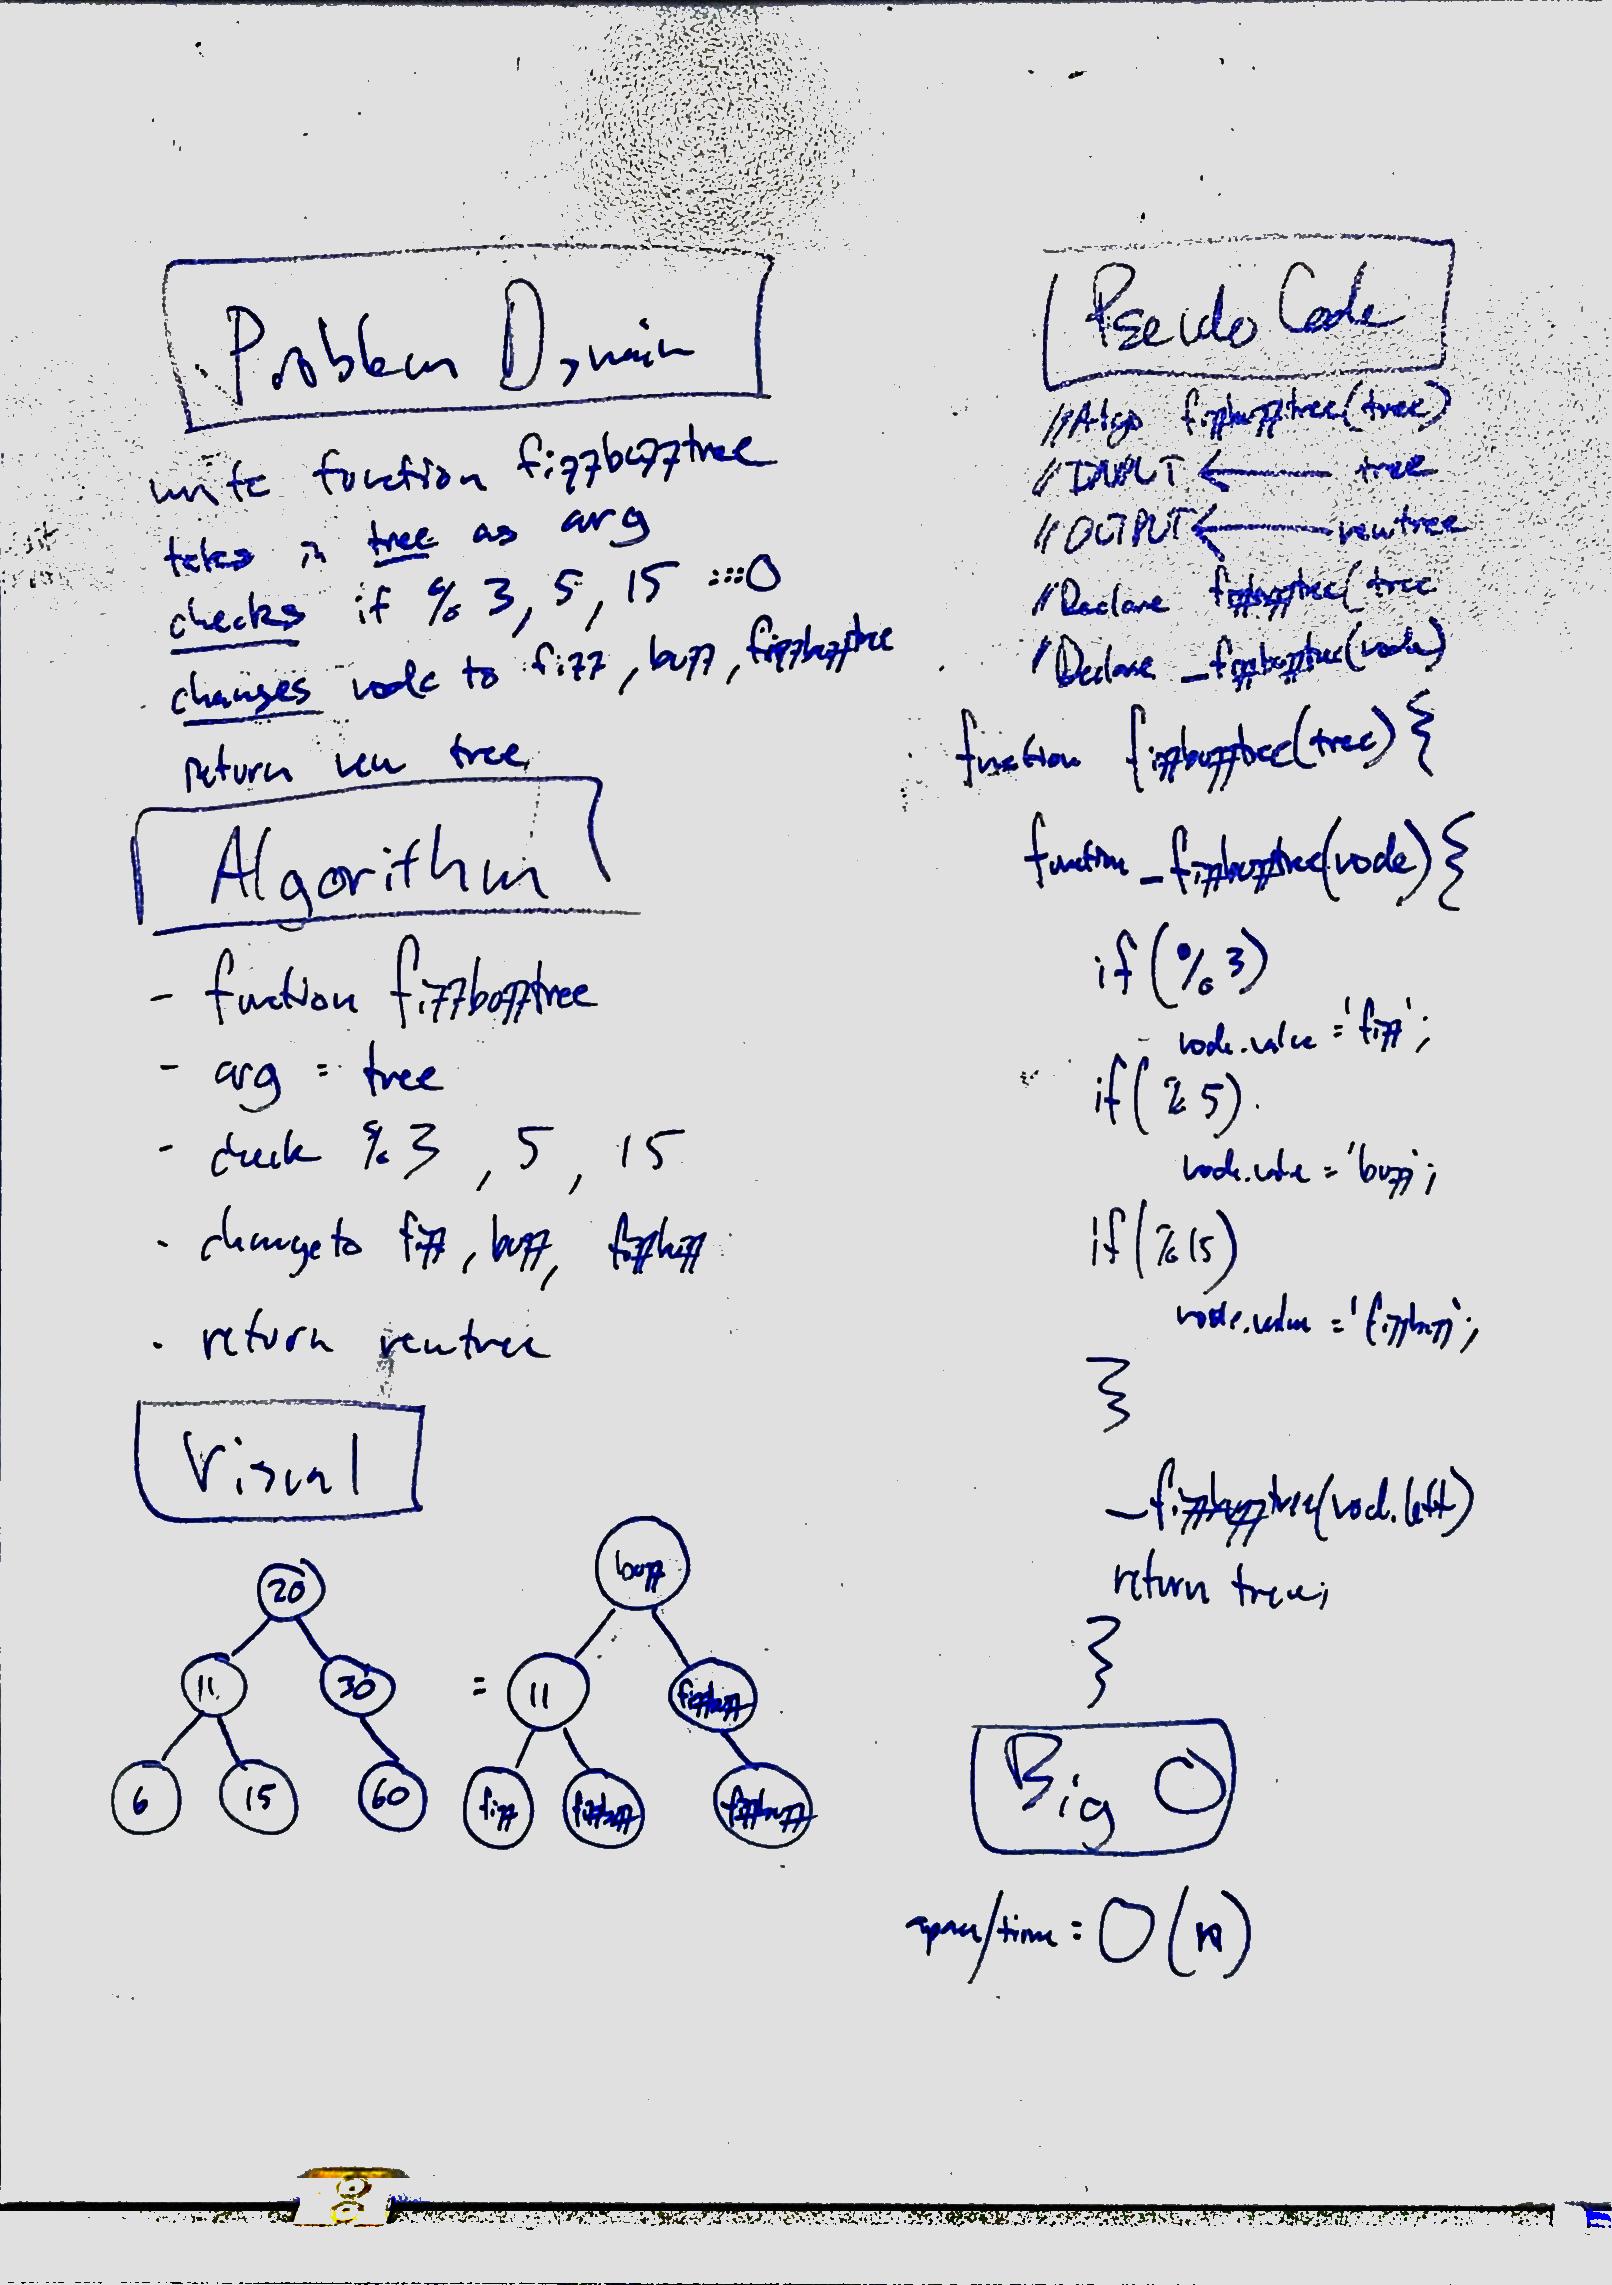 Problem Domain
write function fizzbuzztree
takes in tree as arg
checks if % 3, 5, 15 === 0
changes node to fizz, buzz, fizzbuzztree
return new tree
Algorithm
- function fizzbuzztree
- arg = tree
- check % 3, 5, 15
- change to fizz, buzz, fizzbuzz
- return newtree
Visual
20
11 30
6 15 60
=
buzz
11 fizzbuzz
fizz fizzbuzz fizzbuzz
Pseudo Code
//Algo fizzbuzztree(tree)
//INPUT ← tree
//OUTPUT ← newtree
//Declare fizzbuzztree(tree
//Declare _fizzbuzztree(node)
function fizzbuzztree(tree) {
function _fizzbuzztree(node) {
if (% 3)
node.value = 'fizz';
if (% 5)
node.value = 'buzz';
if (% 15)
node.value = 'fizzbuzz';
}
_fizzbuzztree(nod.left)
return tree;
}
Big O
space/time = O(n)